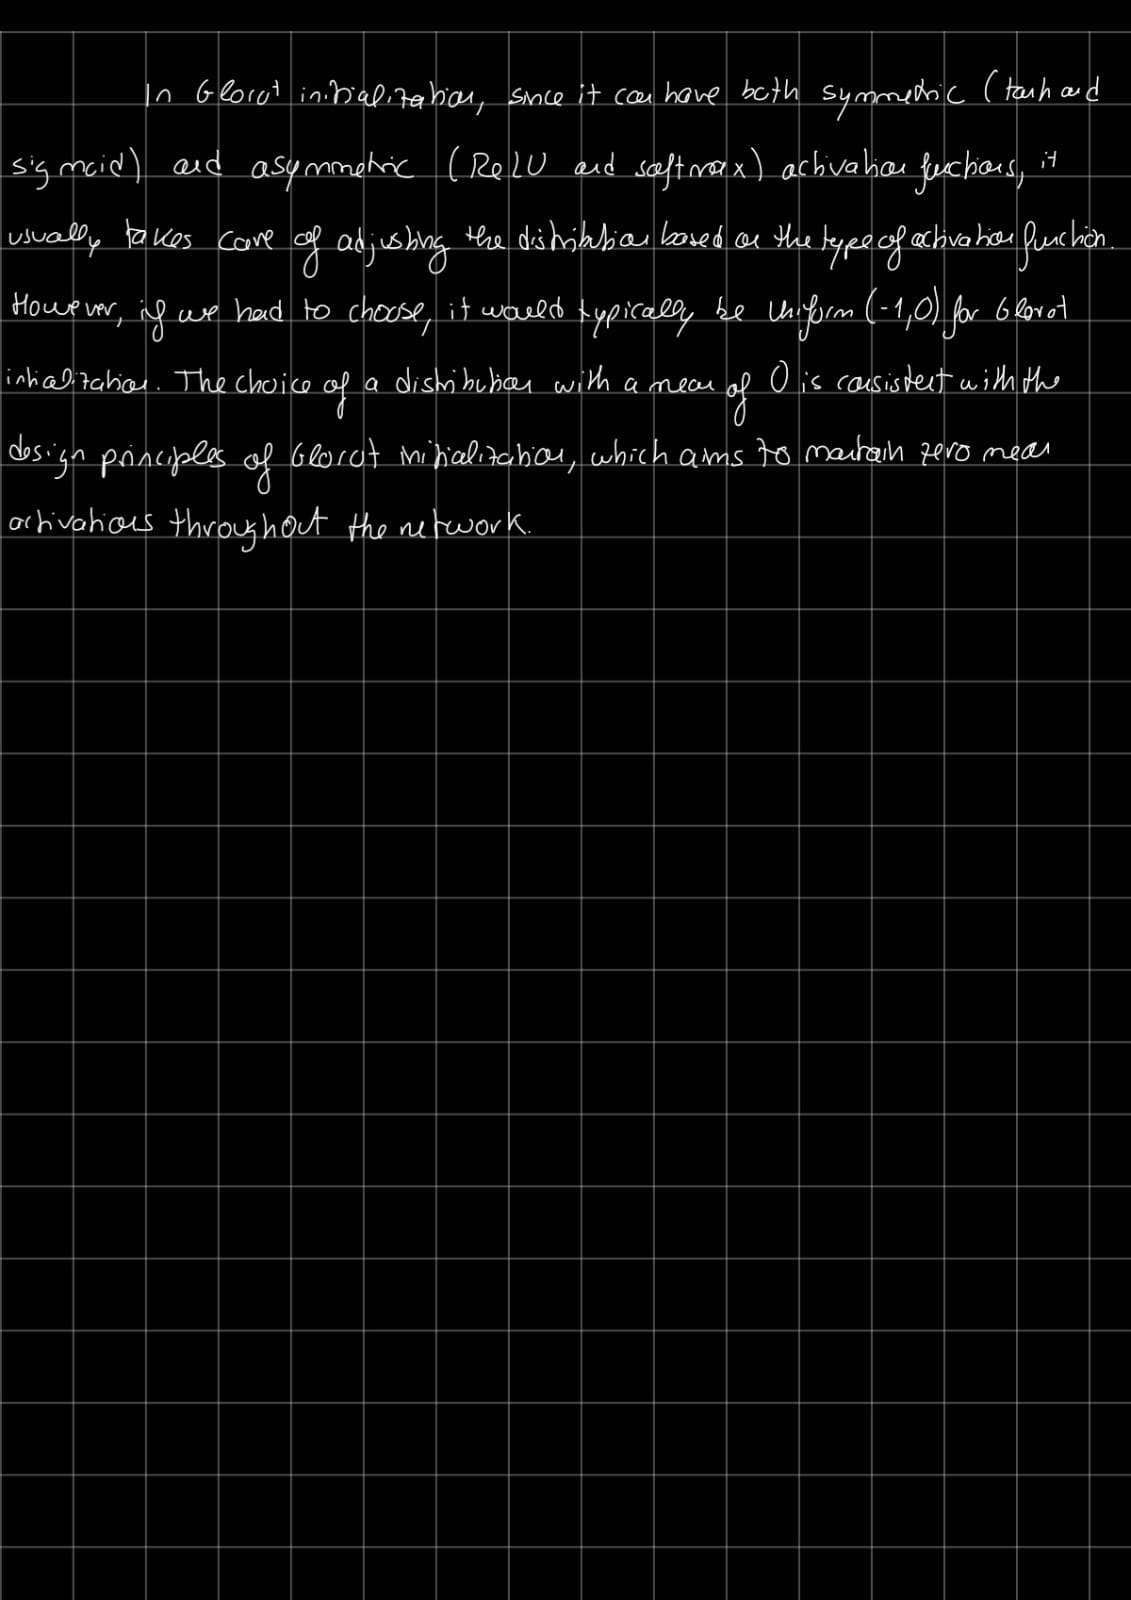 In Glorot initialization, since it can have both symmetric (tanh and
sigmoid) and asymmetric (ReLU and softmax) activation functions, it
usually takes care of adjusting the distribution based on the type of activation function.
However, if we had to choose, it would typically be Uniform (-1,0) for Glorot
initialization. The choice of a distribution with a mean of 0 is consistent with the
design principles of Glorot initialization, which aims to maintain zero mean
activations throughout the network.